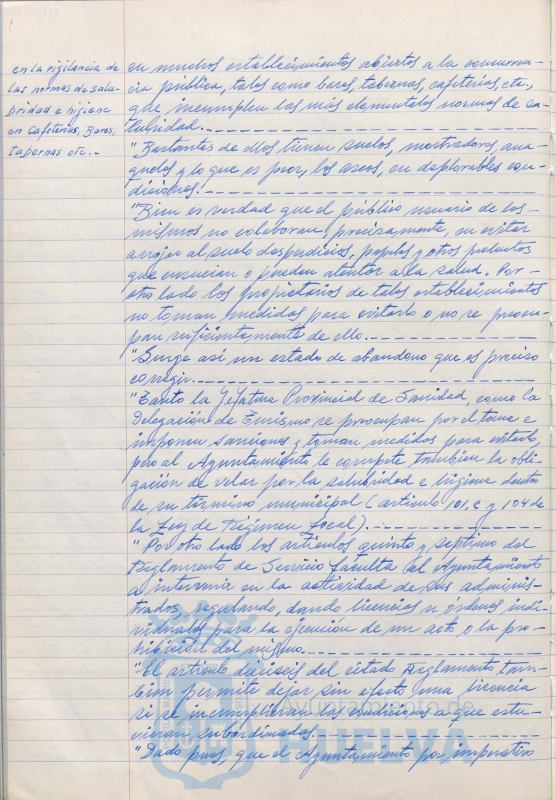 en la vigilancia de
las normas de salu-
bridad e higiene
en Cafeterías, Bares,
tabernas etc.-
en muchos establecimientos abiertos a la concurren-
cia pública, tales como bares, tabernas, cafeterías, etc.,
que incumplen las más elementales normas de sa-
lubridad.
"Bastantes de ellos tienen suelos, mostradores, ana-
queles y lo que es peor, los aseos, en deplorables con-
diciones.
"Bien es verdad que el público usuario de los
mismos no colaboran, precisamente, en evitar
arrojar al suelo desperdicios, papeles y otros productos
que ensucian o pueden atentar a la salud. Por
otro lado los propietarios de tales establecimientos
no toman medidas para evitarlo o no se preocu-
pan suficientemente de ello.
"Surge así un estado de abandono que es preciso
corregir.
"Tanto la Jefatura Provincial de Sanidad, como la
Delegación de Turismo se preocupan por el tema e
imponen sanciones y toman medidas para evitarlo,
pero al Ayuntamiento le compete tambien la obli-
gación de velar por la salubridad e higiene dentro
de su término municipal (artículo 101, c y 104 de
la Ley de Régimen Local).
"Por otro lado los artículos quinto y septimo del
Reglamento de Servicio faculta al Ayuntamiento
a intervenir en la actividad de sus adminis-
trados, regulando, dando licencias u órdenes indi-
viduales para la ejecución de un acto o la pro-
hibición del mismo.
"El artículo dieciseis del citado Reglamento tam-
bién permite dejar sin efecto una licencia
si se incumplieran las condiciones a que estu-
vieran subordinados.
"Dado pues, que el Ayuntamiento por imperativo
Ayuntamiento de
HUELVA